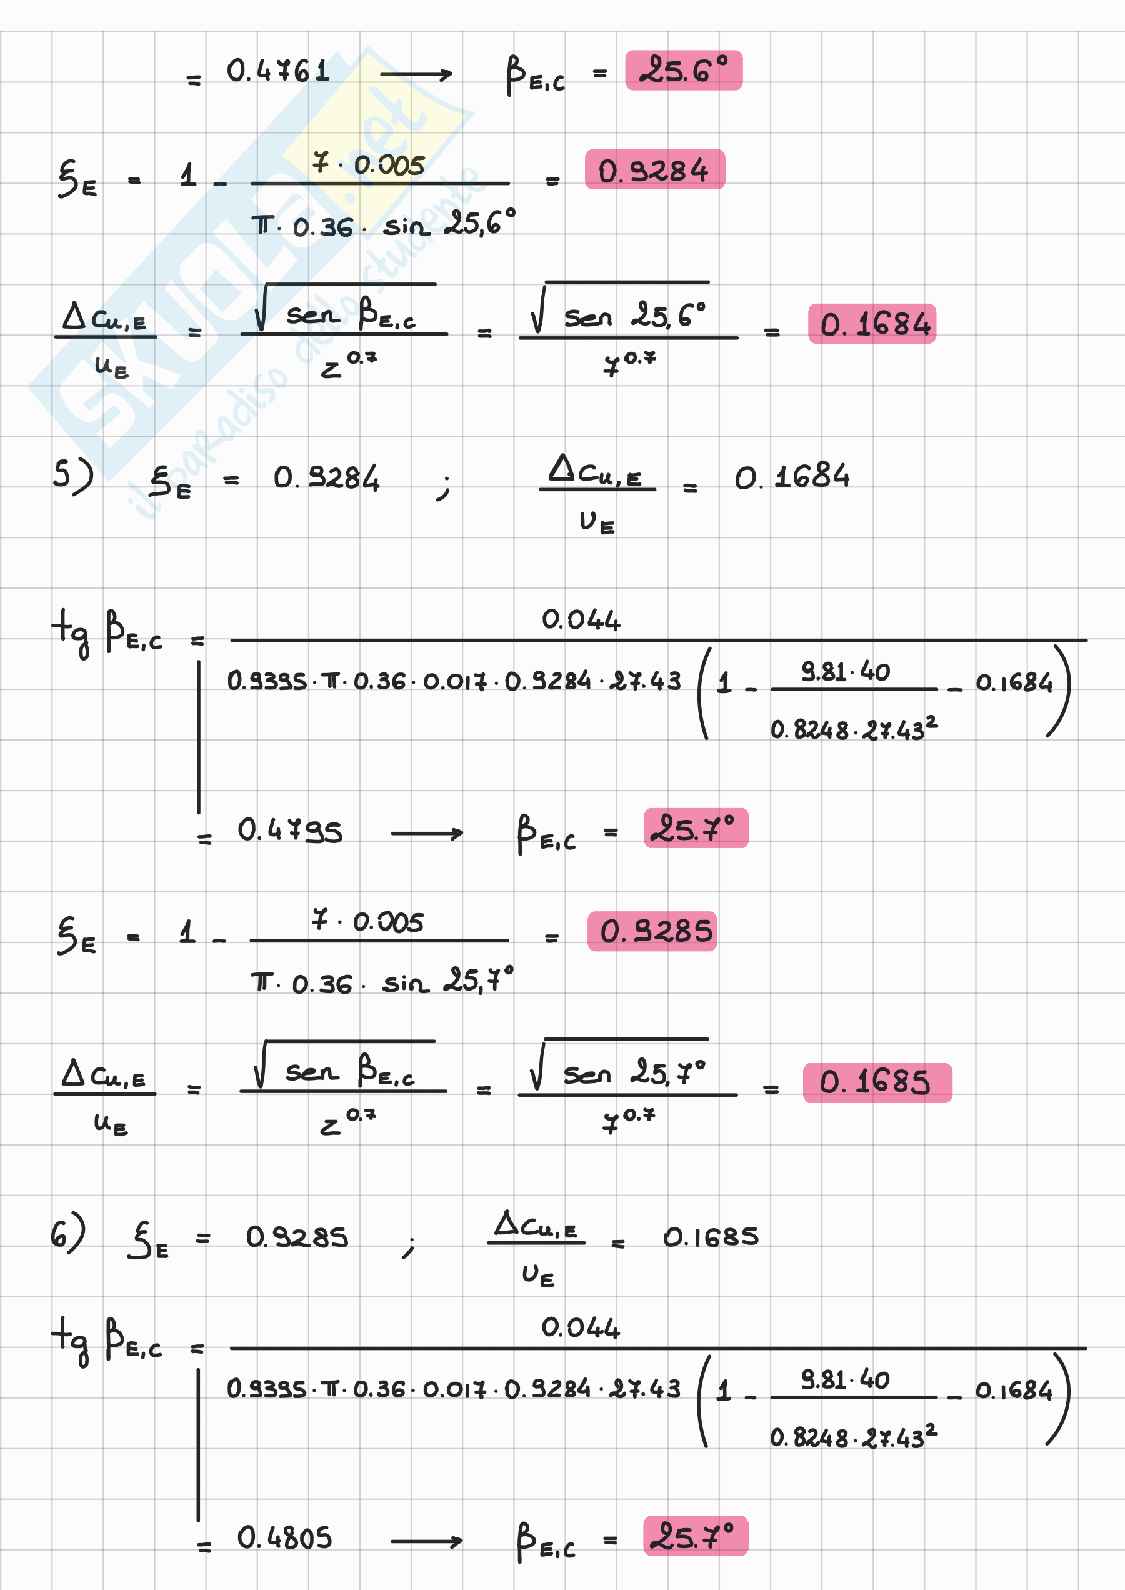 = 0.4761 ⟶ β_E,C = 25.6°
ξ_E = 1 - (7 · 0.005) / (π · 0.36 · sin 25,6°) = 0.9284
Δc_u,E / u_E = √(sen β_E,C) / z^0.7 = √(sen 25,6°) / 7^0.7 = 0.1684
5) ξ_E = 0.9284 ; Δc_u,E / u_E = 0.1684
tg β_E,C = 0.044 / (0.9395 · π · 0.36 · 0.017 · 0.9284 · 27.43 (1 - (9.81 · 40) / (0.8248 · 27.43²) - 0.1684))
= 0.4795 ⟶ β_E,C = 25.7°
ξ_E = 1 - (7 · 0.005) / (π · 0.36 · sin 25,7°) = 0.9285
Δc_u,E / u_E = √(sen β_E,C) / z^0.7 = √(sen 25,7°) / 7^0.7 = 0.1685
6) ξ_E = 0.9285 ; Δc_u,E / u_E = 0.1685
tg β_E,C = 0.044 / (0.9395 · π · 0.36 · 0.017 · 0.9284 · 27.43 (1 - (9.81 · 40) / (0.8248 · 27.43²) - 0.1684))
= 0.4805 ⟶ β_E,C = 25.7°
SKUOLA.net
il paradiso dello studente